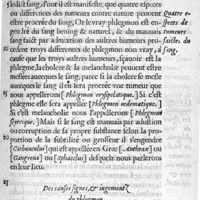 sang. Or il est manifeste, que quatre especes
ou differences des tumeurs contre nature peuuent
estre procrée du sang, Or le vray phlegmon est en-
gendré du sang bening & naturel, & du mauuais
sang fait à l'imitation des autres humeurs pro-
cedent troys differences de phlegmon non vray, à
cause que les troys autres humeurs, sçauoir est la
phlegme, la cholere & la melancholie peuuent estre
meslées auecques le sang, parce que si la cholere est
meslée auecques luy il en sera procrée vne tumeur que
nous appellerons [Phlegmon erysipelatique]. Si c'est
phlegme elle sera appellée [Phlegmon œdematique.]
Si c'est melancholie nous l'appellerons [Phlegmon
scyrrique]. Mais si le sang est mauuais par adustion
ou corruption de sa propre substance, selon la pro-
portion de la subtilité ou grosseur il s'engendre
[Carbunculus] qui est appellée des Grecs [Anthrax] ou
[Gangrena] ou [sphacelus] desquels nous parlerons
en leur lieu.
Quatre e-
speces de
tumeurs
faictes du
sang.
Des causes, signes, & iugement
du phlegmon.